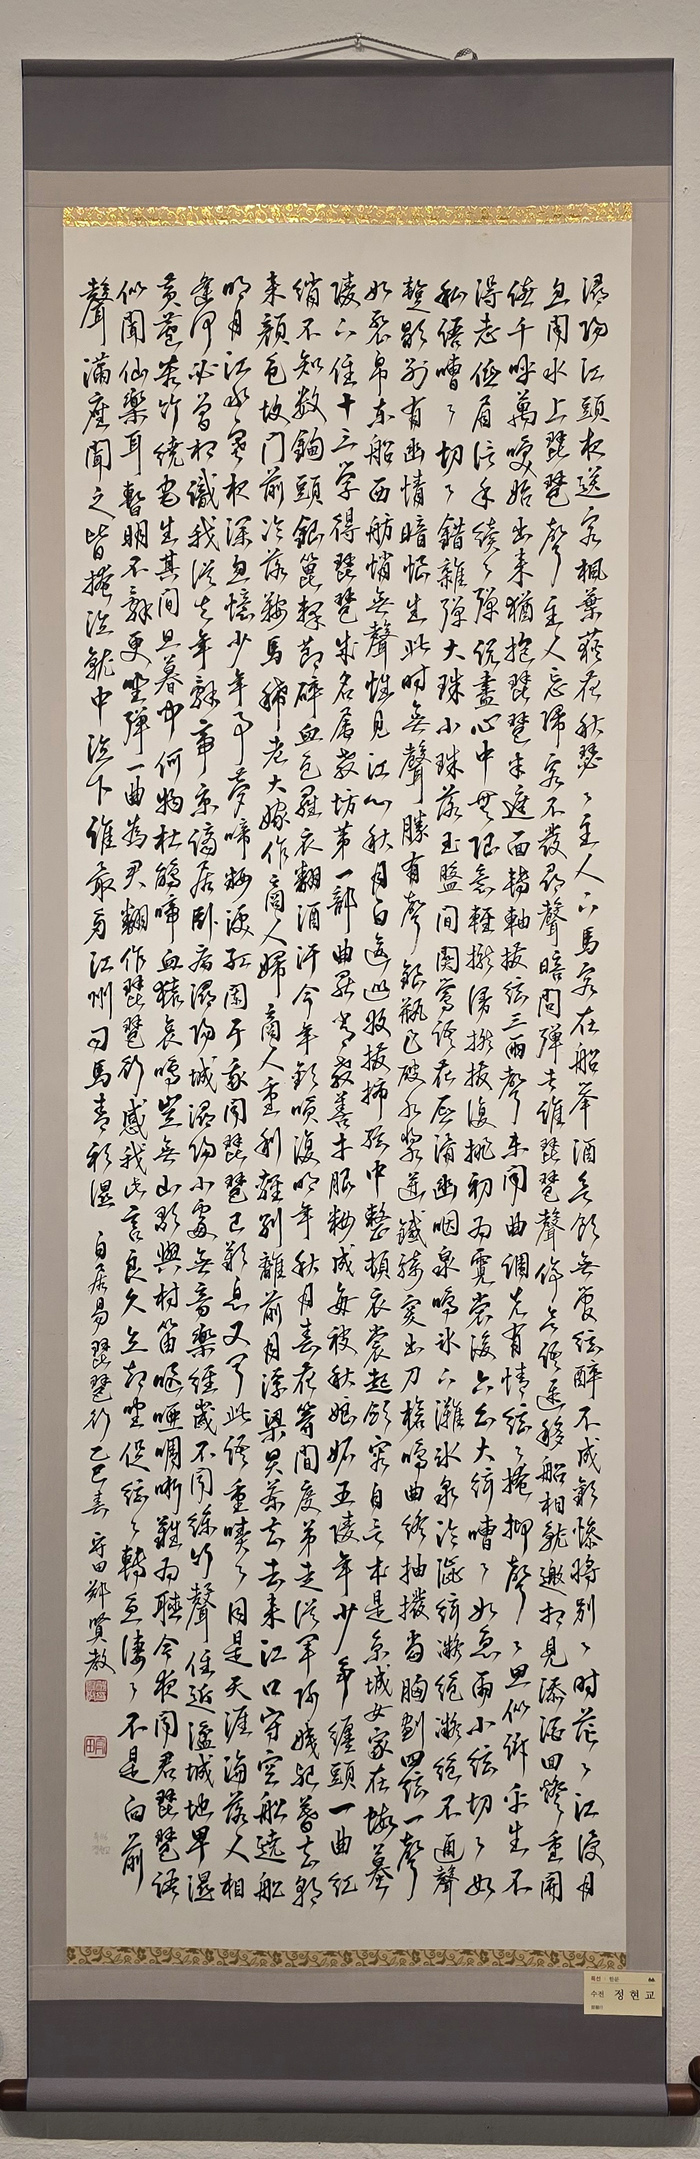 潯陽江頭夜送客楓葉荻花秋瑟々主人下馬客在船举酒欲飲無管絃醉不成歡慘將別々時茫々江浸月
忽聞水上琵琶聲主人忘歸客不發尋聲暗問彈者誰琵琶聲停欲語遲移船相就邀相見添酒回燈重開
宴千呼萬喚始出來猶抱琵琶半遮面轉軸撥絃三兩聲未成曲調先有情絃々掩抑聲々思似訴平生不
得志低眉信手續々彈說盡心中無限意輕攏慢撚撥復挑初為霓裳後六幺大絃嘈々如急雨小絃切々如
私語嘈々切々錯雜彈大珠小珠落玉盤間關鶯語花底滑幽咽泉鳴氷下灘氷泉冷澁絃凝絕凝絕不通聲
蹔歇別有幽情暗恨生此時無聲勝有聲銀瓶乍破水漿迸鐵騎突出刀槍鳴曲終抽撥當胸劃四絃一聲
如裂帛東船西舫悄無聲惟見江心秋月白沈吟收撥插絃中整頓衣裳起斂容自言本是京城女家在蝦蟇
陵下住十三学得琵琶成名屬教坊第一部曲罷常教善才服粧成每被秋娘妬五陵年少爭纏頭一曲紅
綃不知數鈿頭銀篦擊節碎血色羅衣翻酒汙今年歡笑復明年秋月春花等閒度弟走從軍阿姨死暮去朝
來顏色故門前冷落鞍馬稀老大嫁作商人婦商人重利輕別離前月浮梁買茶去去來江口守空船遶船
明月江水寒夜深忽憶少年事夢啼粧淚紅闌干我聞琵琶已歎息又聞此語重唧々同是天涯淪落人相
逢何必曾相識我從去年辭帝京謫居臥病潯陽城潯陽小處無音樂終歲不聞絲竹聲住近湓城地卑濕
黃蘆苦竹繞宅生其間旦暮聞何物杜鵑啼血猿哀鳴豈無山歌與村笛嘔啞嘲哳難為聽今夜聞君琵琶語
似聞仙樂耳暫明不辭更坐彈一曲為君翻作琵琶行感我此言良久立却坐促絃々轉急凄々不是向前
聲滿座聞之皆掩泣就中泣下誰最多江州司馬青衫濕 白居易琵琶行 乙巳春 守田鄭賢教
특선 · 한문 66
수전 정현교